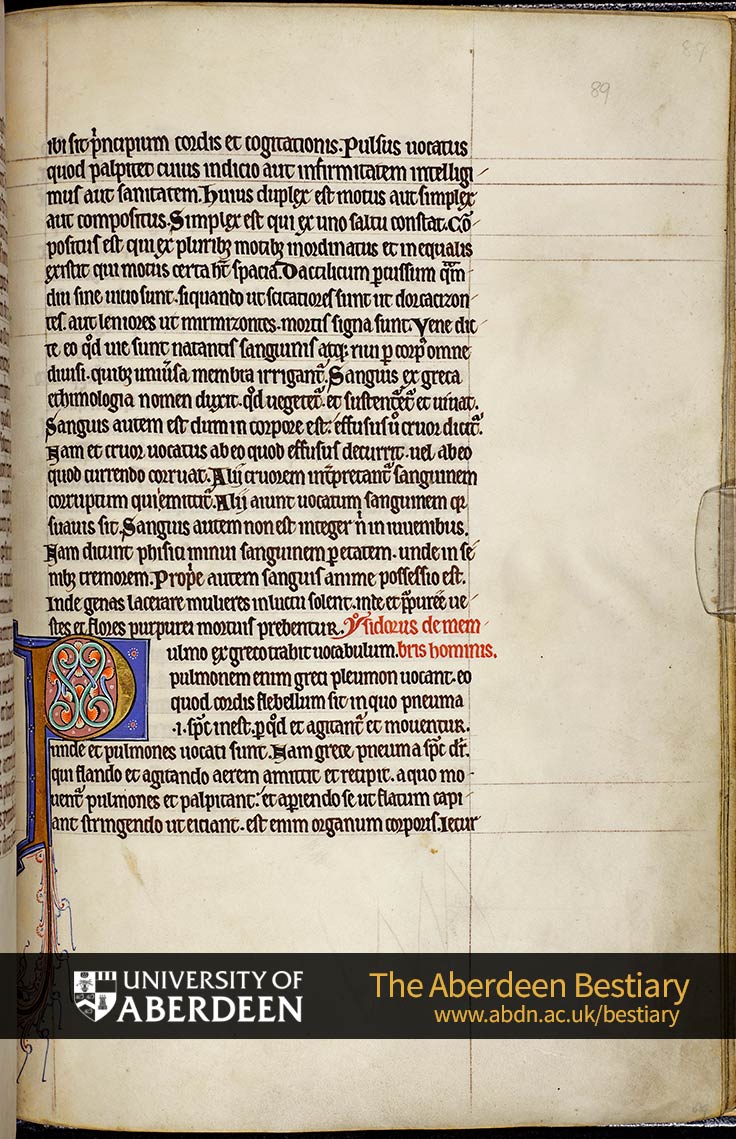 87
89
ibi sit p̍ncipium cordis et cogitationis. Pulsus uocatus
quod palpitet cuius indicio aut infirmitatem intelligi
mus aut sanitatem. Huius duplex est motus aut simplex
aut compositus. Simplex est qui ex uno saltu constat. Cō
positus est qui ex plurib; motib; inordinatus et inequalis
existit qui motus certa hn̄t spacia. Dactilicum ꝑcussum qͣm
diu sine uicio sunt. siquando ut
sunt ut dorcacizon
tes. aut leniores ut mirmizontes. mortis signa sunt. Vene dic
te eo qd̓ uie sunt natantis sanguinis atq; riui ꝑ corp̓ omne
diuisi. quib; uniu̓sa membra irrigant᷑. Sanguis ex greca
ethimologia nomen duxit. qd̓ uegetet᷑ et sustentet᷑ et uiuat.
Sanguis autem est dum in corpore est. effusus u̓o cruor dicit᷑.
Nam et cruor uocatus ab eo quod effusus decurrit. uel ab eo
quod currendo corruat. Alij cruorem int̓pretant᷑ sanguinem
corruptum qui emittit᷑. Alij aiunt uocatum sanguinem qꝫ
suauis sit. Sanguis autem non est integer n̍ in iuuenibus.
Nam dicunt phisici minui sanguinem ꝑ etatem. unde in se
nib; tremorem. Prop̍e autem sanguis anime possessio est.
Inde genas lacerare mulieres in luctu solent. inde et p̄puree ue
stes et flores purpurei mortuis prebentur. Ysidorus de mem
Pulmo ex greco trahit uocabulum. bris hominis.
pulmonem enim greci pleumon uocant. eo
quod cordis flebellum sit in quo pneuma
.i. sp̄c inest. ꝑ qd̓ et agitant᷑ et mouentur.
unde et pulmones uocati sunt. Nam grece pneuma sp̄c dr̄.
qui flando et agitando aerem amittit et recipit. a quo mo
uent᷑ pulmones et palpitant. et aꝑiendo se ut flatum capi
ant stringendo ut eiciant. est enim organum corporis. Iecur
UNIVERSITY OF
ABERDEEN
The Aberdeen Bestiary
www.abdn.ac.uk/bestiary